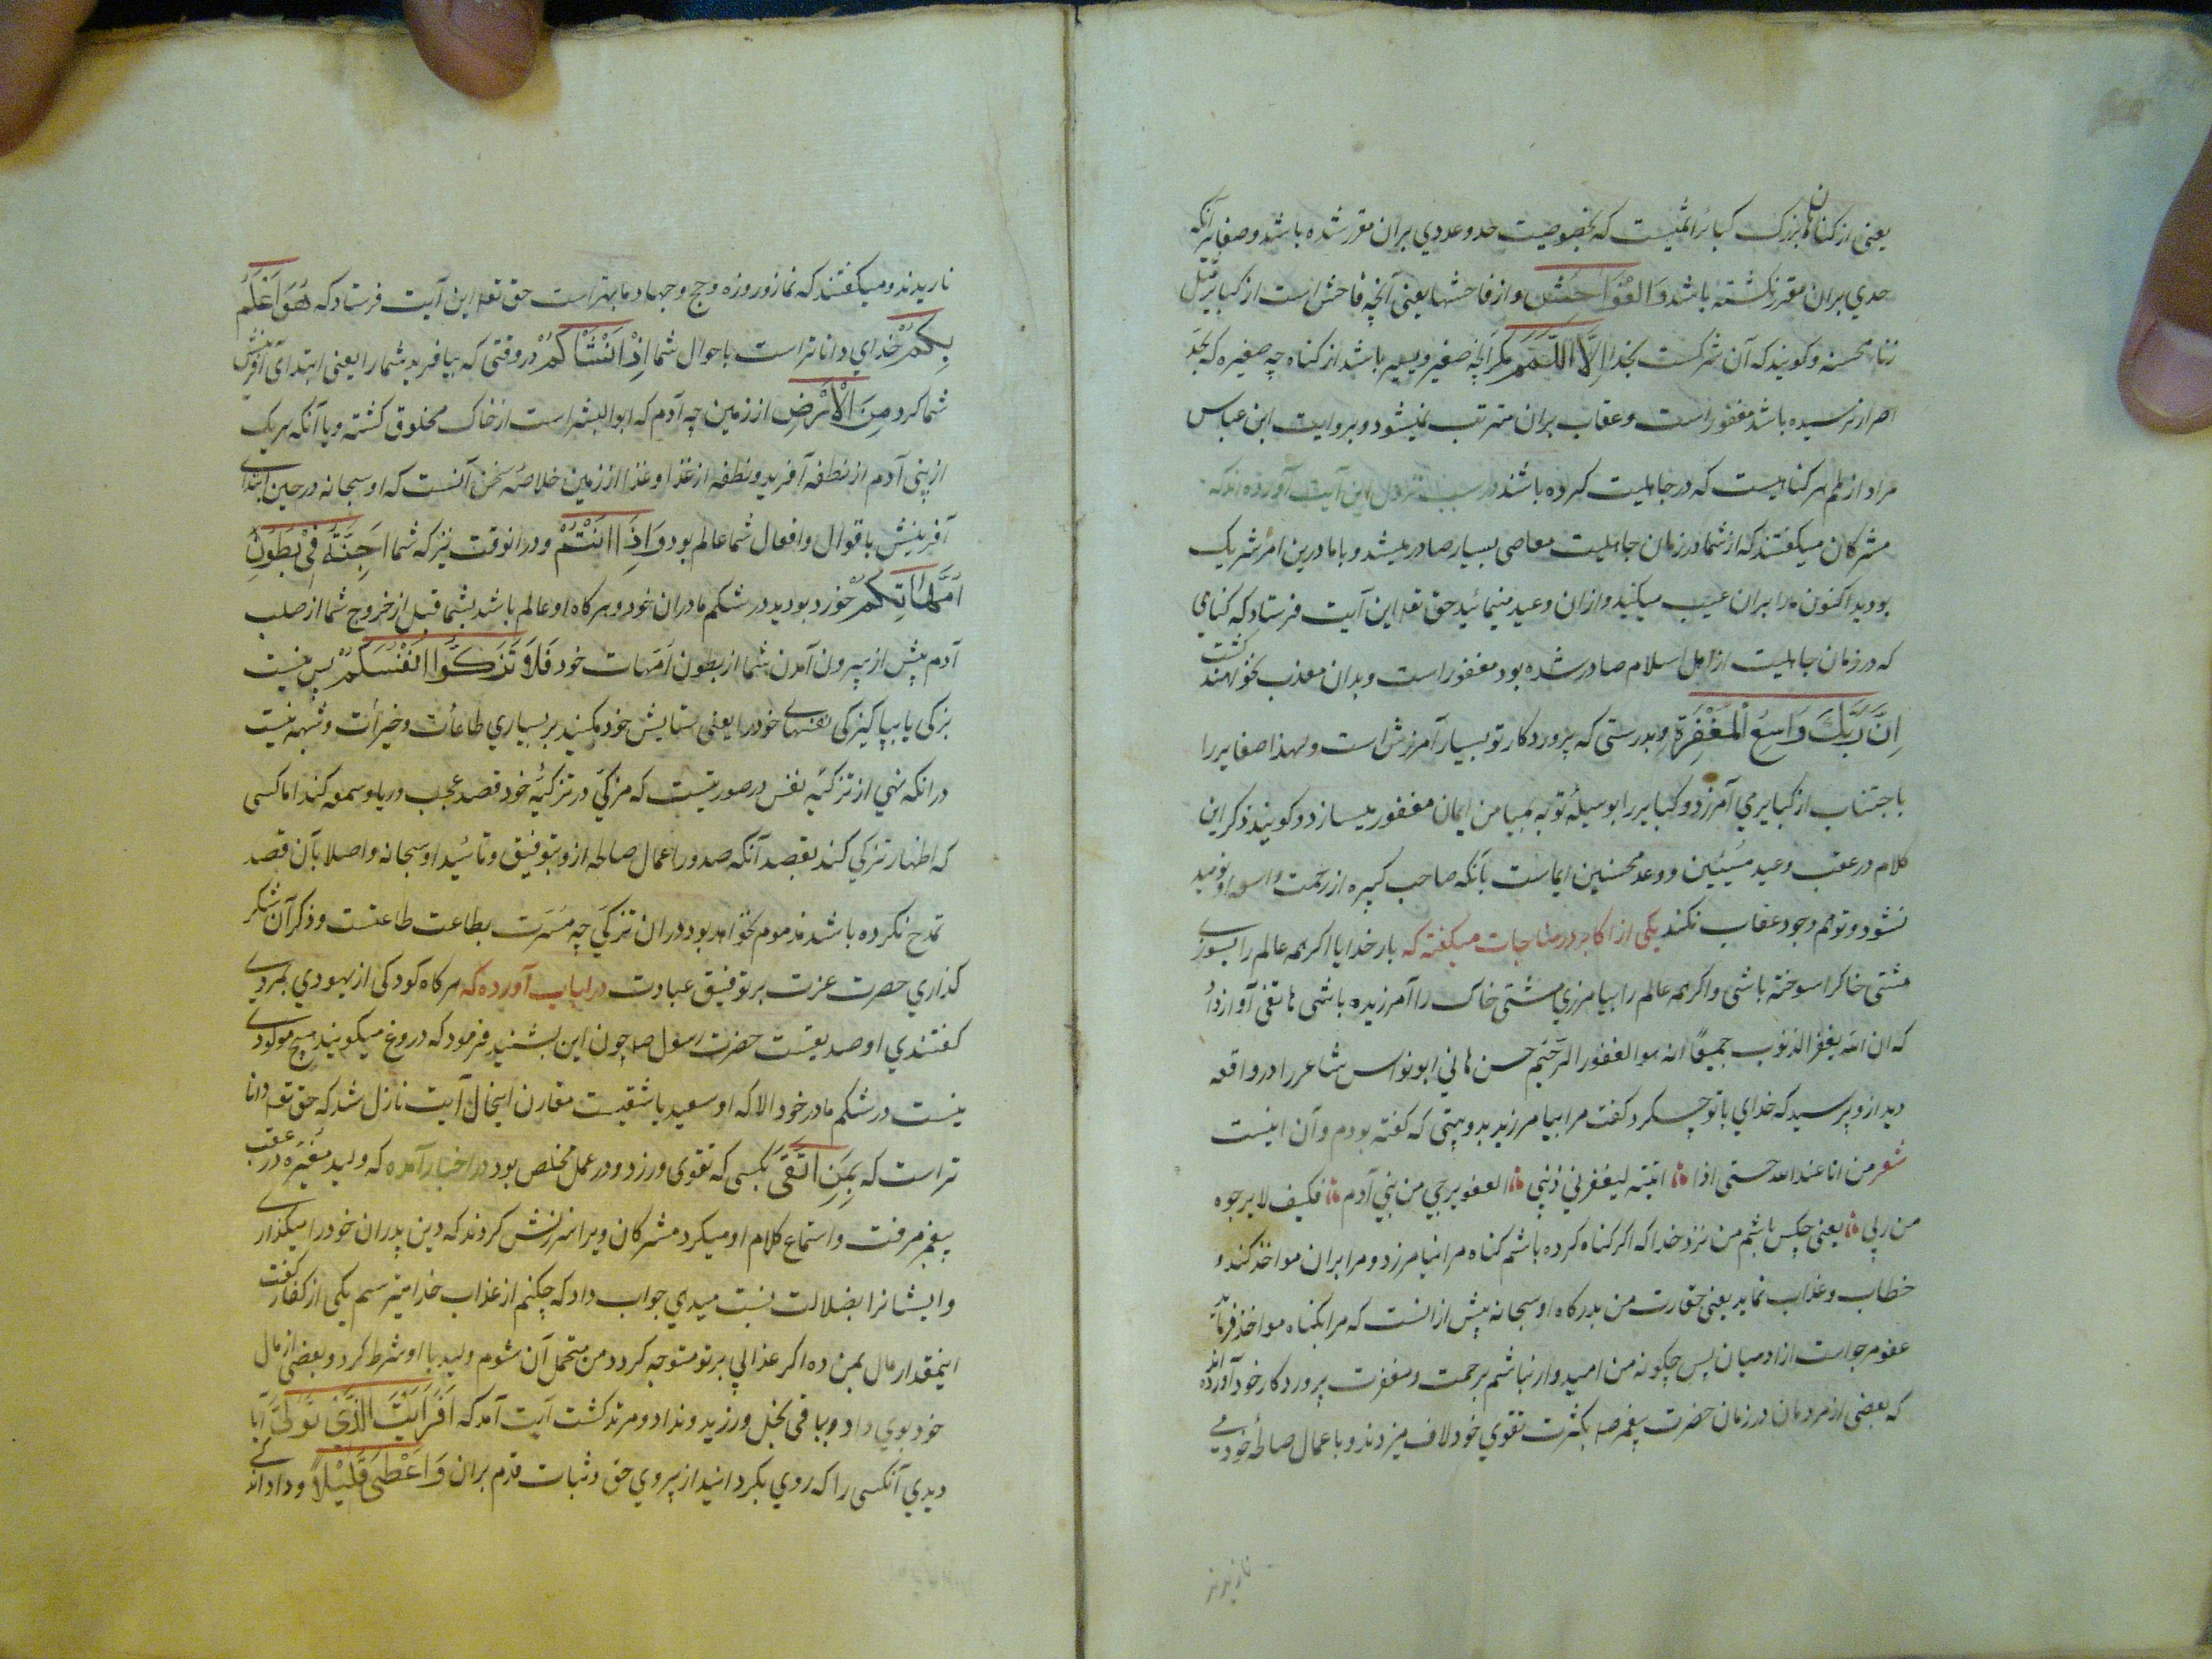 یعنی از کناهان بزرک کبائر اثمیست که بخصوصیت حد وعددي بران مقرر شده باشد وصغایر آنکه
حدي بران مقرر نکشته باشد وَالْفَوَاحِشَ واز فاحشها یعنی آنچه فاحش است از کبایر مثل
زنا محسنه وکویند که آن شرکست بخدا اِلَّا اللَّمَمَ مکر آنچه صغیر ویسیر باشد از کناه چه صغیره که بحد
اصرار نرسیده باشد مغفور است وعقاب بران مترتب نمیشود وبروایت ابن عباس
مراد از لمم هر کناهیست که در جاهلیت کرده باشند در سبب نزول این آیت آورده اند که
مشرکان میکفتند که از شما در زمان جاهلیت معاصی بسیار صادر میشد وباما درین امر شریک
بودید اکنون مارا بران عیب میکنید وازان وعید مینمائید حق تعه این آیت فرستاد که کناهي
که در زمان جاهلیت از اهل اسلام صادر شده بود مغفور است وبدان معذب نخواهند کشت
اِنَّ رَبَّكَ وَاسِعُ الْمَغْفِرَةِ بدرستی که پروردکار تو بسیار آمرزش است ولهذا صغایر را
باجتناب از کبایر می آمرزد وکبایر را بوسیلهٔ توبه بمیامن ایمان مغفور میسازد وکویند ذکر این
کلام در عقب وعید مسیئین ووعد محسنین ایماست بآنکه صاحب کبیره از رحمت واسعه او نومید
نشود وتوهم وجود عقاب نکند یکی از اکابر در مناجات میکفته که بار خدایا اکر همه عالم را بسوزی
مشتی خاکرا سوخته باشی واکر همه عالم را بیامرزي مشتی خاک را آمرزیده باشی هاتفی آواز داد
که ان الله یغفر الذنوب جمیعًا انه هو الغفور الرحیم حسن هاني ابو نواس شاعر را در واقعه
دید ازو پرسید که خدای باتو چکرد کفت مرا بیامرزید بدو بیتی که کفته بودم وآن اینست
شعر من انا عند الله حستی اذا اتیته لیغفر لي ذنبي العفو یرجي من بني آدم فکیف لا یرجوه
من ربي یعنی چکس باشم من نزد خدا که اکر کناه کرده باشم کناه مرا نیامرزد ومرا بران مواخذ کند و
خطاب وعذاب نماید یعنی حقارت من بدرکاه او سبحانه پیش ازانست که مرا بکناه مواخذ فرماید
عفو مرجواست از ادمیان پس چکونه من امیدوار نباشم برحمت ومغفرت پروردکار خود آورده اند
که بعضی از مردمان در زمان حضرت پیغمبر صلا بکثرت تقوي خود لاف میزدند وباعمال صالحهٔ خود می
نازیدند
نازیدند ومیکفتند که نماز وروزه وحج وجهاد ما بهتر است حق تعه این آیت فرستاد که هُوَ اَعْلَمُ
بِكُمْ خدای داناتر است باحوال شما اِذْ اَنْشَاَكُمْ در وقتی که بیافرید شما را یعنی ابتدای آفرینش
شما کرد مِنَ الْاَرْضِ از زمین چه آدم که ابو البشر است از خاک مخلوق کشته ویا آنکه هر یک
از بنی آدم از نطفه آفرید ونطفه از غذا وغذا از زمین خلاصهٔ سخن آنست که او سبحانه در حین ابتدای
آفرینش باقوال وافعال شما عالم بود وَاِذَا اَنْتُمْ ودر انوقت نیز که شما اَجِنَّةٌ فِيْ بُطُوْنِ
اُمَّهَاتِكُمْ خورد بودید در شکم مادران خود وهرکاه او عالم باشد بشما قبل از خروج شما از صلب
آدم پیش از بیرون آمدن شما از بطون اَمهات خود فَلَا تُزَكُّوا اَنْفُسَكُمْ پس نیست
بزکی یا بپاکیزکی نفسهای خود را یعنی ستایش خود مکنید بر بسیاري طاعات وخیرات وشبهه نیست
در انکه نهي از تزکیّه نفس در صورتیست که مزکي در تزکیّه خود قصد عجب وریا وسمعه کند اما کسی
که اظهار تزکي کند بقصد آنکه صدور اعمال صالحه ازو بتوفیق وتائید او سبحانه واصلا بآن قصد
تمدح نکرده باشد مذموم نخواهد بود دران تزکي چه مسرت بطاعت طاعتست وذکر آن شکر
کذاري حضرت عزت بر توفیق عبادت در لباب آورده که هرکاه کودکی از یهودي بمردی
کفتندي او صدیقست حضرت رسول صلا چون این بشنید فرمود که دروغ میکویند هیچ مولودی
نیست در شکم مادر خود الا که او سعید یا شقیست مقارن اینحال آیت نازل شد که حق تعه دانا
تر است که بِمَنِ اتَّقٰى بکسی که تقوی ورزد ودر عمل مخلص بود در اخبار آمده که ولید مغیره در عقب
پیغمبر میرفت واستماع کلام او میکرد مشرکان ویرا سرزنش کردند که دین پدران خود را میکذاری
وایشانرا بضلالت نسبت میدهي جواب داد که چکنم از عذاب خدا میترسم یکی از کفار کفت
اینمقدار مال بمن ده اکر عذابی بر تو متوجه کردد من متحمل آن شوم ولید با او شرط کرد وبعضی از مال
خود بوي داد وبباقی بخل ورزید ونداد ومرتد کشت آیت آمد که اَفَرَاَيْتَ الَّذِيْ تَوَلّٰى آیا
دیدي آنکسی را که روي بکردانید از پیروي حق وثبات قدم بران وَاَعْطٰى قَلِيْلًا وداد اندکی